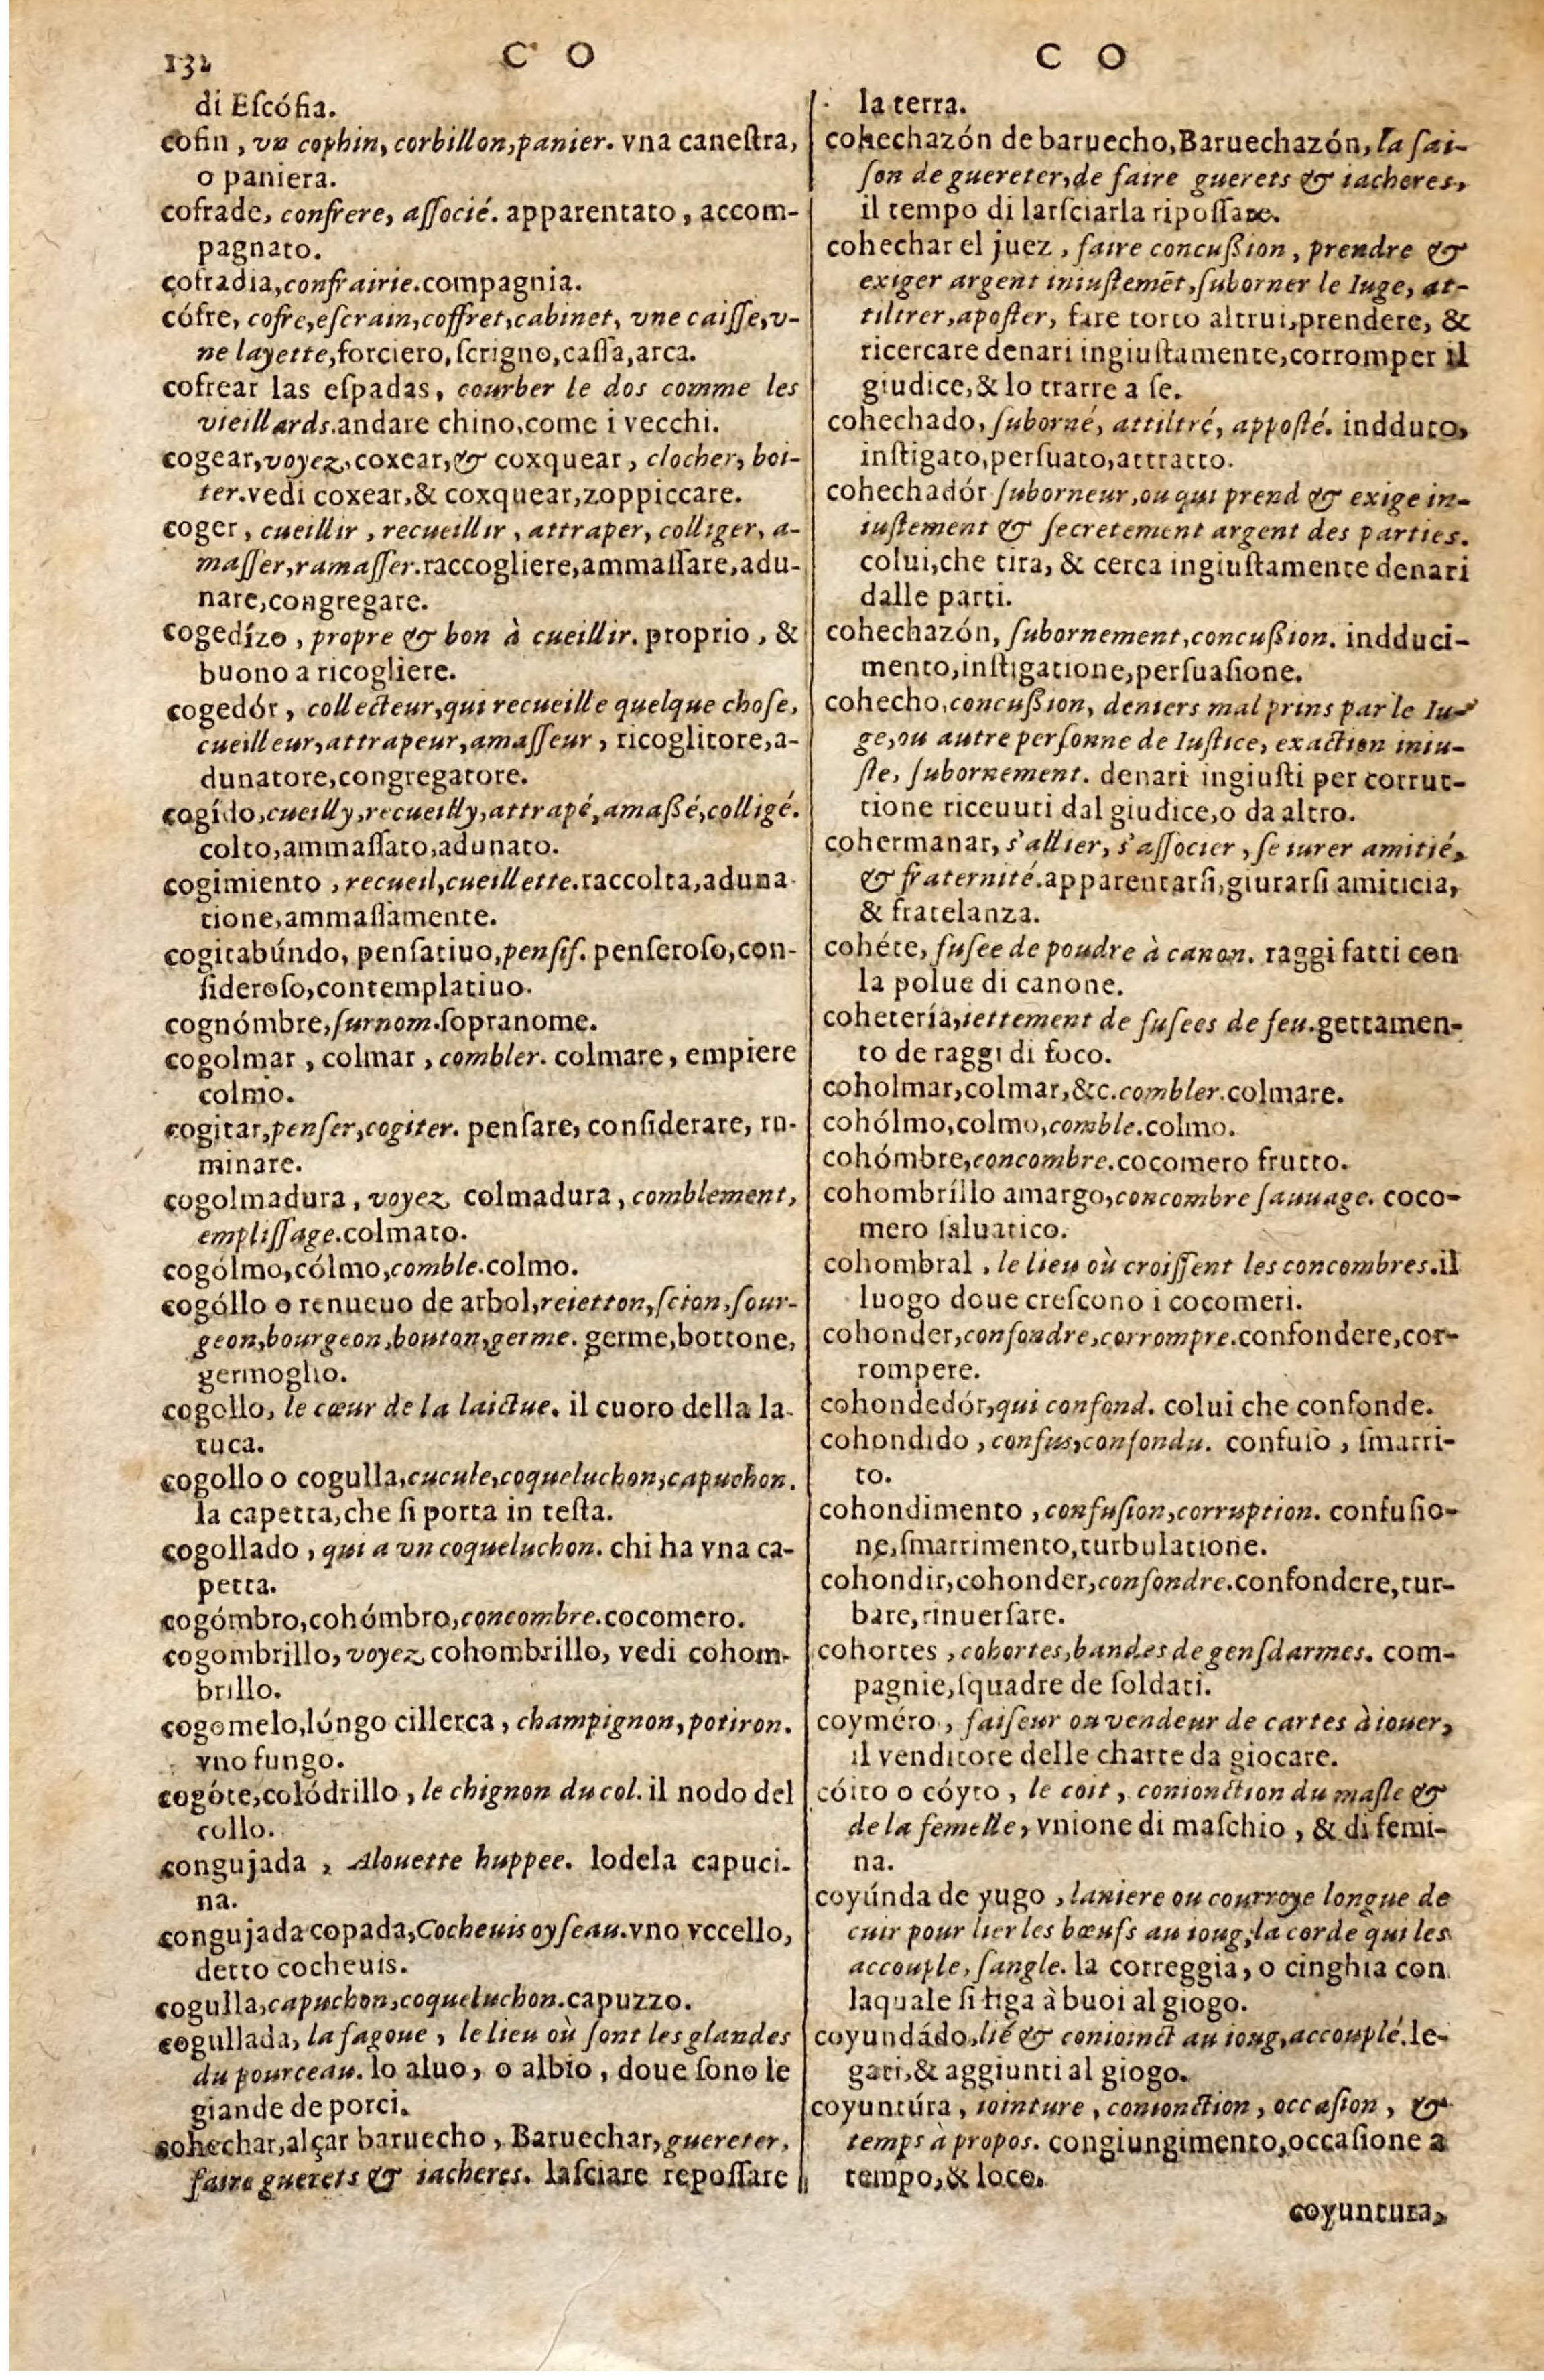 132
C O
di Eſcófia.
cofin, vn cophin, corbillon, panier. vna caneſtra,
o paniera.
cofrade, confrere, aſſocié. apparentato, accom-
pagnato.
cofradia, confrairie. compagnia.
cófre, cofre, eſcrain, coffret, cabinet, vne caiſſe, v-
ne layette, forciero, ſcrigno, caſſa, arca.
cofrear las eſpadas, courber le dos comme les
vieillards. andare chino, come i vecchi.
cogear, voyez, coxear, & coxquear, clocher, boi-
ter. vedi coxear, & coxquear, zoppiccare.
coger, cueillir, recueillir, attraper, colliger, a-
maſſer, ramaſſer. raccogliere, ammaſſare, adu-
nare, congregare.
cogedízo, propre & bon à cueillir. proprio, &
buono a ricogliere.
cogedór, collecteur, qui recueille quelque choſe,
cueilleur, attrapeur, amaſſeur, ricoglitore, a-
dunatore, congregatore.
cogído, cueilly, recueilly, attrapé, amaßé, colligé.
colto, ammaſſato, adunato.
cogimiento, recueil, cueillette. raccolta, aduna-
tione, ammaſſamente.
cogitabúndo, penſatiuo, penſif. penſeroſo, con-
ſideroſo, contemplatiuo.
cognómbre, ſurnom. ſopranome.
cogolmar, colmar, combler. colmare, empiere
colmo.
cogitar, penſer, cogiter. penſare, conſiderare, ru-
minare.
cogolmadura, voyez colmadura, comblement,
empliſſage. colmato.
cogólmo, cólmo, comble. colmo.
cogóllo o renueuo de arbol, reietton, ſcion, ſour-
geon, bourgeon, bouton, germe. germe, bottone,
germoglio.
cogollo, le cœur de la laictue. il cuoro della la-
tuca.
cogollo o cogulla, cucule, coqueluchon, capuchon.
la capetta, che ſi porta in teſta.
cogollado, qui a vn coqueluchon. chi ha vna ca-
petta.
cogómbro, cohómbro, concombre. cocomero.
cogombrillo, voyez cohombrillo, vedi cohom-
brillo.
cogomelo, lúngo cillerca, champignon, potiron.
vno fungo.
cogóte, colódrillo, le chignon du col. il nodo del
collo.
congujada, Alouette huppee. lodela capuci-
na.
congujada copada, Cocheuis oyſeau. vno vccello,
detto cocheuis.
cogulla, capuchon, coqueluchon. capuzzo.
cogullada, la fagoue, le lieu où ſont les glandes
du pourceau. lo aluo, o albio, doue ſono le
giande de porci.
cohechar, alçar baruecho, Baruechar, guereter,
faire guerets & iacheres. laſciare repoſſare
C O
la terra.
cohechazón de baruecho, Baruechazón, la ſai-
ſon de guereter, de faire guerets & iacheres,
il tempo di larſciarla ripoſſare.
cohechar el juez, faire concußion, prendre &
exiger argent iniuſtemẽt, ſuborner le Iuge, at-
tiltrer, apoſter, fare torto altrui, prendere, &
ricercare denari ingiuſtamente, corromper il
giudice, & lo trarre a ſe.
cohechado, ſuborné, attiltré, appoſté. indduto,
inſtigato, perſuato, attratto.
cohechadór ſuborneur, ou qui prend & exige in-
iuſtement & ſecretement argent des parties.
colui, che tira, & cerca ingiuſtamente denari
dalle parti.
cohechazón, ſubornement, concußion. indduci-
mento, inſtigatione, perſuaſione.
cohecho, concußion, deniers mal prins par le Iu-
ge, ou autre perſonne de Iuſtice, exaction iniu-
ſte, ſubornement. denari ingiuſti per corrut-
tione riceuuti dal giudice, o da altro.
cohermanar, s'allier, s'aſſocier, ſe iurer amitié,
& fraternité. apparentarſi, giurarſi amiticia,
& fratelanza.
cohéte, fuſee de poudre à canon. raggi fatti con
la polue di canone.
cohetería, iettement de fuſees de feu. gettamen-
to de raggi di foco.
coholmar, colmar, &c. combler. colmare.
cohólmo, colmo, comble. colmo.
cohómbre, concombre. cocomero frutto.
cohombríllo amargo, concombre ſauuage. coco-
mero ſaluatico.
cohombral, le lieu où croiſſent les concombres. il
luogo doue creſcono i cocomeri.
cohonder, confondre, corrompre. confondere, cor-
rompere.
cohondedór, qui confond. colui che confonde.
cohondido, confus, confondu. confuſo, ſmarri-
to.
cohondimento, confuſion, corruption. confuſio-
ne, ſmarrimento, turbulatione.
cohondir, cohonder, confondre. confondere, tur-
bare, rinuerſare.
cohortes, cohortes, bandes de genſdarmes. com-
pagnie, ſquadre de ſoldati.
coyméro, faiſeur ou vendeur de cartes à iouer,
il venditore delle charte da giocare.
cóito o cóyto, le coit, conionction du maſle &
de la femelle, vnione di maſchio, & di femi-
na.
coyúnda de yugo, laniere ou courroye longue de
cuir pour lier les bœufs au ioug, la corde qui les
accouple, ſangle. la correggia, o cinghia con
laquale ſi liga à buoi al giogo.
coyundádo, lié & conioinct au ioug, accouplé. le-
gati, & aggiunti al giogo.
coyuntúra, iointure, conionction, occaſion, &
temps a propos. congiungimento, occaſione a
tempo, & loco.
coyuntura,